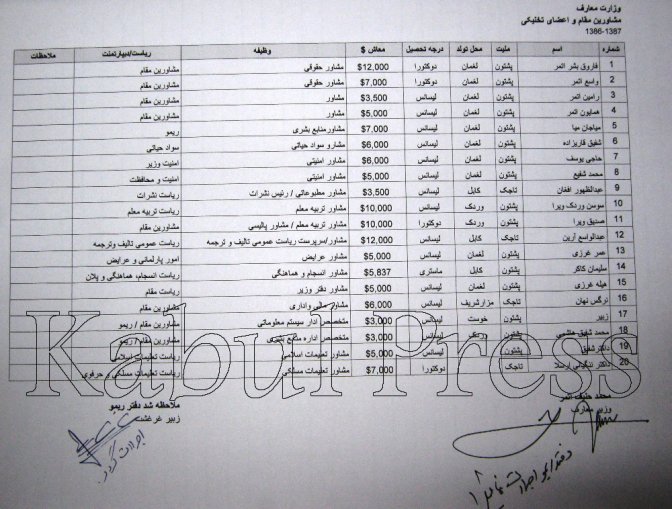 وزارت معارف
مشاورین مقام و اعضای تخنیکی
1386-1387
شماره اسم ملیت محل تولد درجه تحصیل معاش $ وظیفه ریاست/دیپارتمنت ملاحظات
1 فاروق بشر اتمر پشتون لغمان دوکتورا $12,000 مشاور حقوقی مشاورین مقام
2 واسع اتمر پشتون لغمان دوکتورا $7,000 مشاور حقوقی مشاورین مقام
3 رامین اتمر پشتون لغمان لیسانس $3,500 مشاور مشاورین مقام
4 همایون اتمر پشتون لغمان لیسانس $5,000 مشاور مشاورین مقام
5 میاجان میا پشتون لغمان لیسانس $7,000 مشاورمنابع بشری ریمو
6 شفیق قاریزاده پشتون لغمان لیسانس $6,000 مشارو سواد حیاتی سواد حیاتی
7 حاجی یوسف پشتون لغمان لیسانس $6,000 مشاور امنیتی امنیت وزیر
8 محمد شفیع پشتون لغمان لیسانس $5,000 مشاور امنیتی امنیت و محافظت
9 عبدالظهور افغان تاجک کابل لیسانس $3,500 مشاور مطبوعاتی / رئیس نشرات ریاست نشرات
10 سوسن وردک ویرا پشتون وردک لیسانس $10,000 مشاور تربیه معلم ریاست تربیه معلم
11 صدیق ویرا پشتون وردک دوکتورا $10,000 مشاور تربیه معلم / مشاور پالیسی مشاورین مقام
12 عبدالواسع آرین تاجک کابل لیسانس $12,000 مشاور/سرپرست ریاست عمومی تالیف و ترجمه ریاست عمومی تالیف وترجمه
13 عمر غرزی پشتون لغمان لیسانس $5,000 مشاور عرایض امور پارلمانی و عرایض
14 سلیمان کاکر پشتون کابل ماستری $5,837 مشاور انسجام و هماهنگی ریاست انسجام، هماهنگی و پلان
15 هیله غرزی پشتون لغمان لیسانس $5,000 مشاور دفتر وزیر ریاست مقام
16 نرگس نهان تاجک مزارشریف لیسانس $6,000 مشاور مالی واداری مشاورین مقام
17 زبیر پشتون خوست لیسانس $3,000 متخصص ادار سیستم معلوماتی مشاورین مقام / ریمو
18 محمد شفیق پشتون وردک لیسانس $3,000 متخصص اداره منابع بشری مشاورین مقام / ریمو
19 داکتر شفیق پشتون لیسانس $5,000 مشاور تعلیمات اسلامی ریاست تعلیمات اسلامی
20 داکتر تاجک دوکتورا $7,000 مشاور تعلیمات مسلکی ریاست تعلیمات مسلکی و حرفوی
Kabul Press
محمد حنیف اتمر
وزیر معارف
ملاحظه شد دفتر ریمو
زبیر غرغشت
اجراات گردد